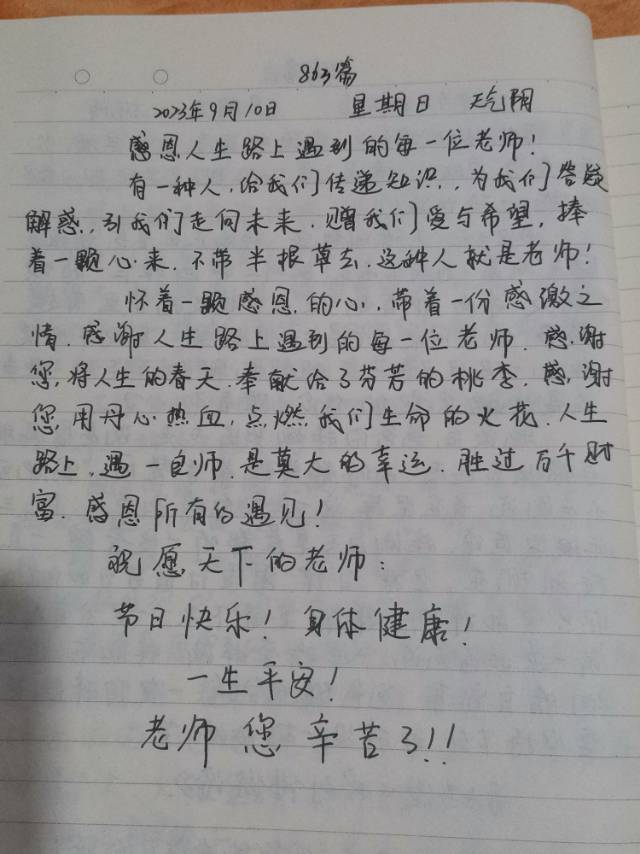 863篇
2023年9月10日 星期日 天气阴
感恩人生路上遇到的每一位老师！
有一种人，给我们传递知识，为我们答疑
解惑，引我们走向未来，赠我们爱与希望，捧
着一颗心来，不带半根草去，这种人就是老师！
怀着一颗感恩的心，带着一份感激之
情，感谢人生路上遇到的每一位老师，感谢
您，将人生的春天，奉献给了芬芳的桃李，感谢
您用丹心热血，点燃我们生命的火花，人生
路上，遇一良师，是莫大的幸运，胜过万千财
富，感恩所有的遇见！
祝愿天下的老师：
节日快乐！身体健康！
一生平安！
老师您辛苦了！！